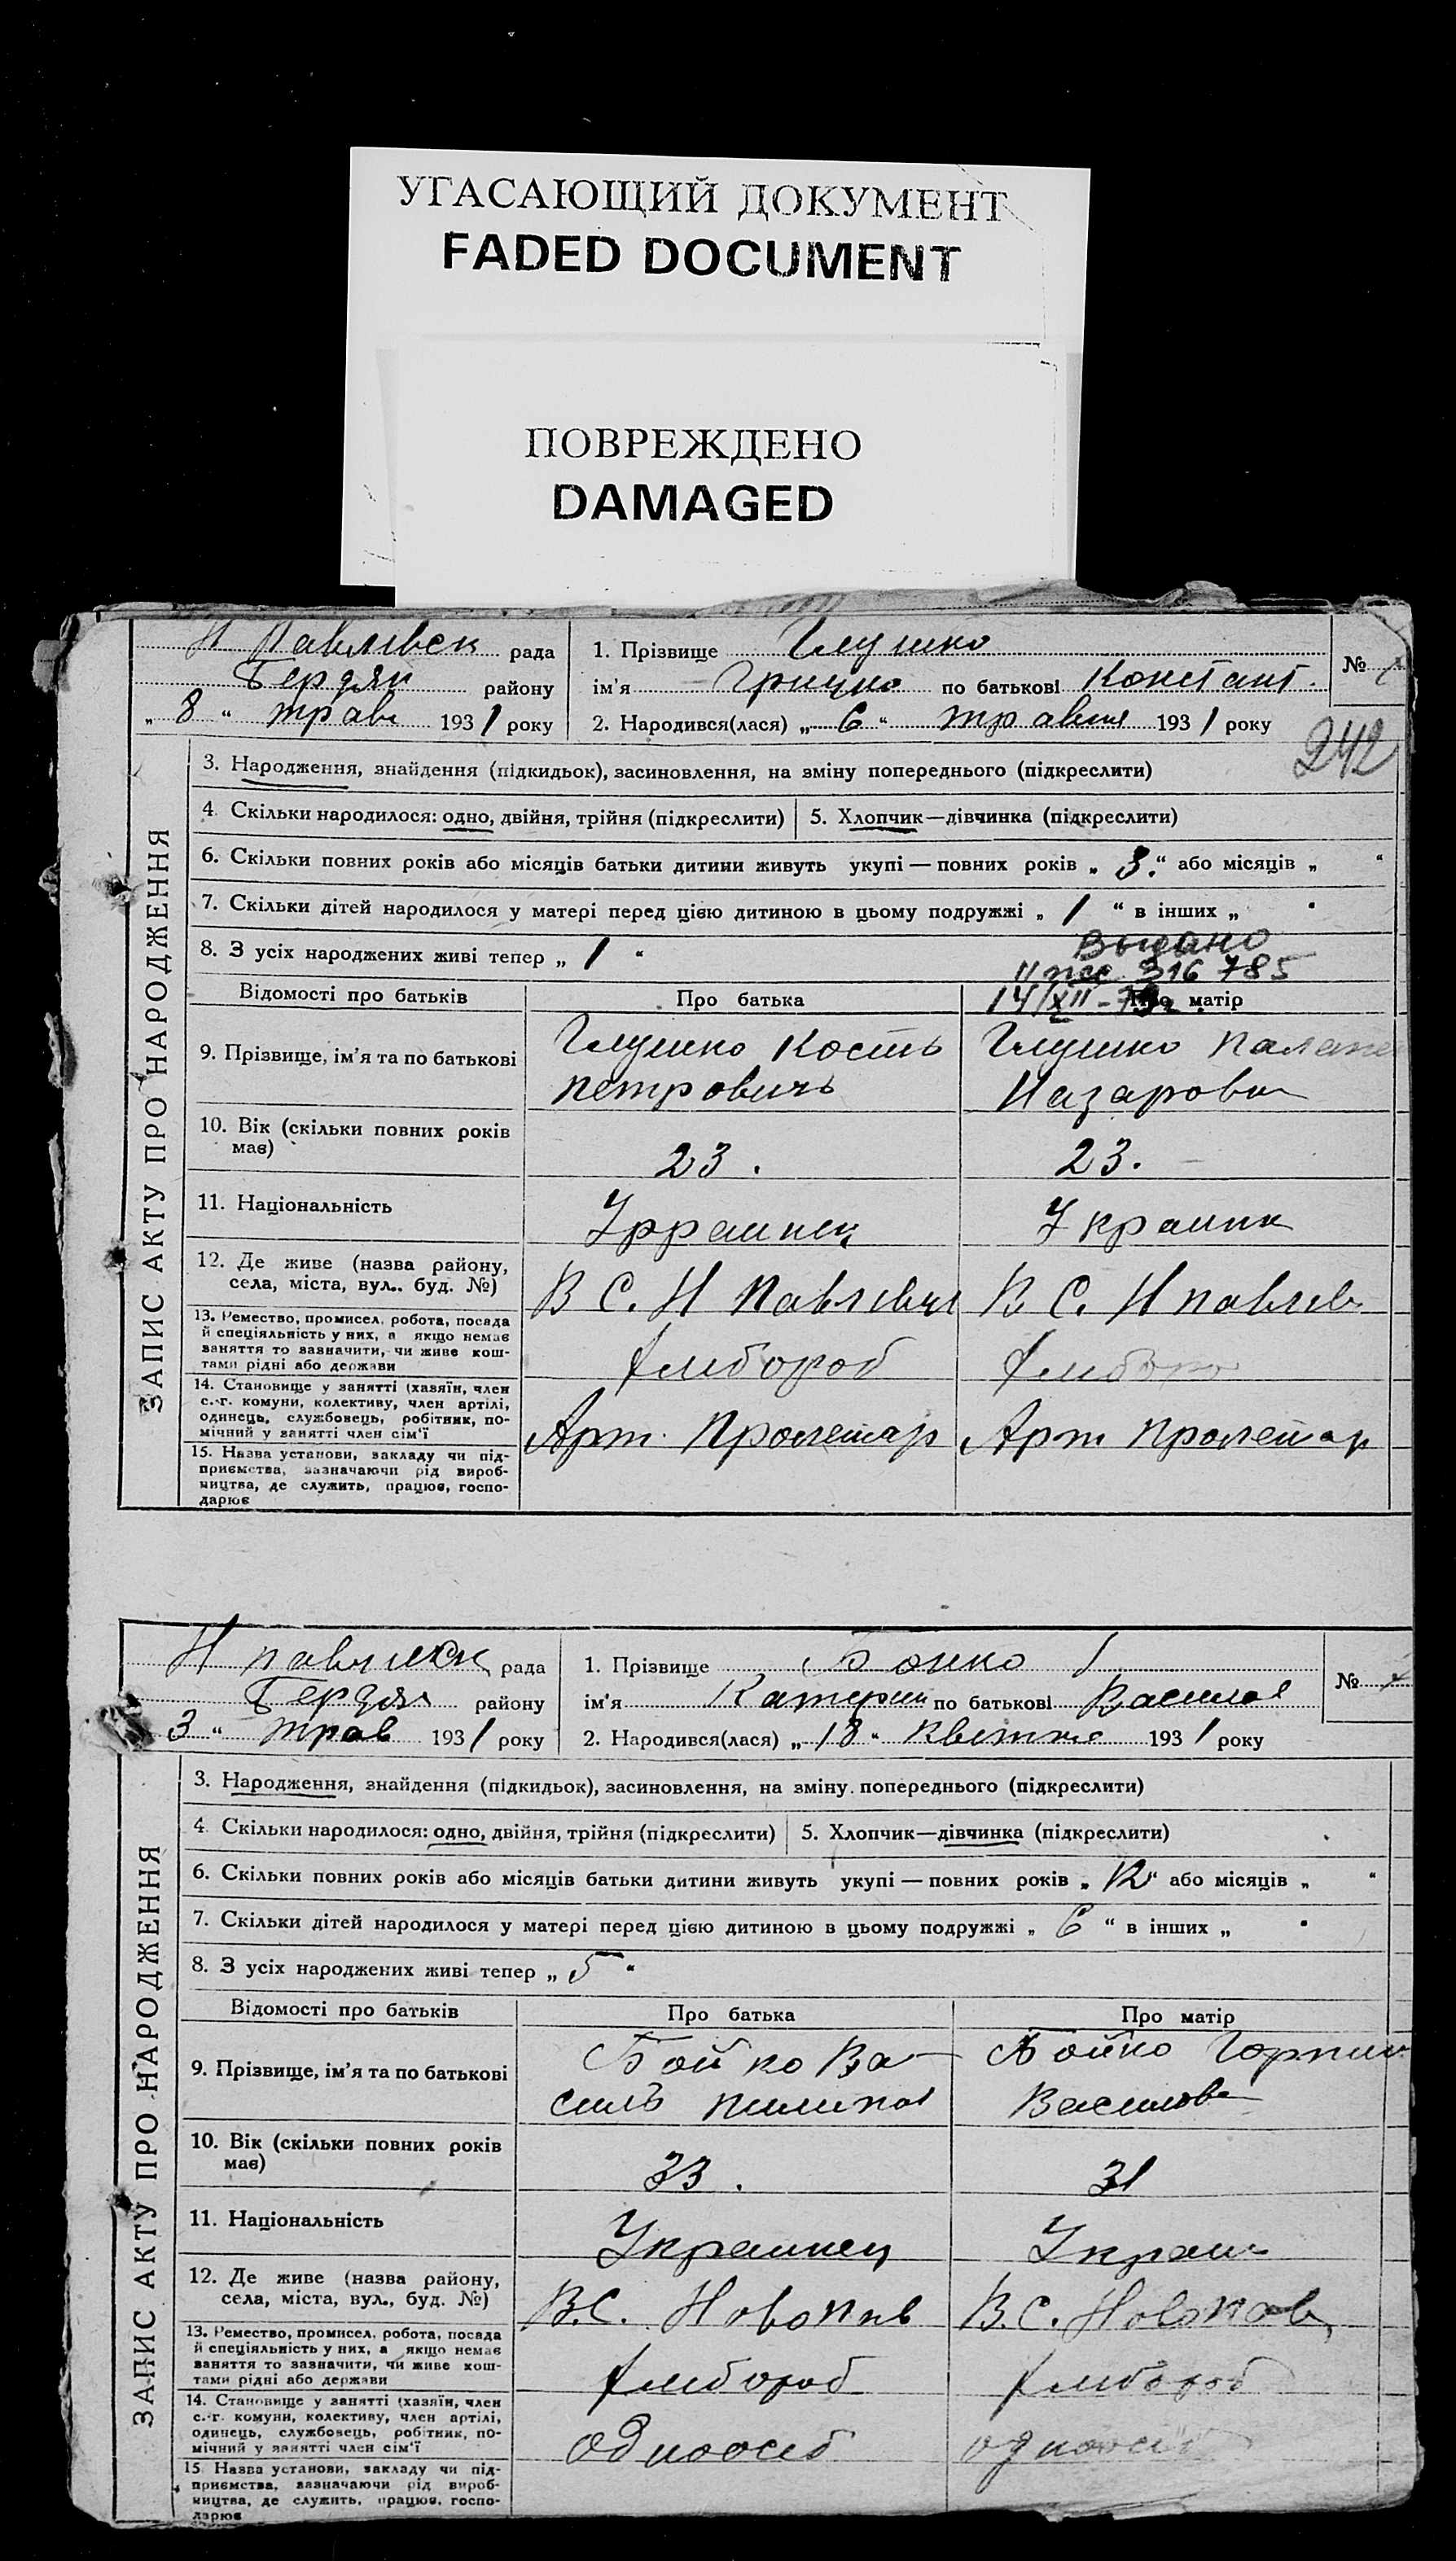 УГАСАЮЩИЙ ДОКУМЕНТ
FADED DOCUMENT
ПОВРЕЖДЕНО
DAMAGED
ЗАПИС АКТУ ПРО НАРОДЖЕННЯ
Н Павлівск рада
Бердян району
„ 8 “ трав 1931 року
1. Прізвище Глушко
ім'я Грицко по батькові Констант.
2. Народився(лася) „ 6 “ травня 1931 року
№
242
3. Народження, знайдення (підкидьок), засиновлення, на зміну попереднього (підкреслити)
4. Скільки народилося: одно, двійня, трійня (підкреслити) 5. Хлопчик—дівчинка (підкреслити)
6. Скільки повних років або місяців батьки дитини живуть укупі — повних років „ 3. “ або місяців „ “
7. Скільки дітей народилося у матері перед цією дитиною в цьому подружжі „ 1 “ в інших „ “
8. З усіх народжених живі тепер „ 1 “
Выдано
316 785
14/XII-
Відомості про батьків Про батька Про матір
9. Прізвище, ім'я та по батькові
Глушко Кость
Петровичь
Глушко Палаж
Назарова
10. Вік (скільки повних років має)
23. 23.
11. Національність
Украинец Украинк
12. Де живе (назва району, села, міста, вул., буд. №)
В С. Н Павлівці В С. Н павлів
13. Ремество, промисел, робота, посада
й спеціяльність у них, а якщо немає
заняття то зазначити, чи живе кош-
тами рідні або держави
хлібороб хлібороб
14. Становище у занятті (хазяїн, член
с.-г. комуни, колективу, член артілі,
одинець, службовець, робітник, по-
мічний у занятті член сім'ї
Арт. Пролетар Арт Пролетар
15. Назва установи, закладу чи під-
приємства, зазначаючи рід вироб-
ництва, де служить, працює, госпо-
дарює
ЗАПИС АКТУ ПРО НАРОДЖЕННЯ
Н павлівск рада
Бердян району
3 “ трав 1931 року
1. Прізвище Бойко
ім'я Катерин по батькові Василов
2. Народився(лася) „ 18 “ Квітня 1931 року
№
3. Народження, знайдення (підкидьок), засиновлення, на зміну попереднього (підкреслити)
4. Скільки народилося: одно, двійня, трійня (підкреслити) 5. Хлопчик—дівчинка (підкреслити)
6. Скільки повних років або місяців батьки дитини живуть укупі — повних років „ 12 “ або місяців „ “
7. Скільки дітей народилося у матері перед цією дитиною в цьому подружжі „ 6 “ в інших „ “
8. З усіх народжених живі тепер „ 5 “
Відомості про батьків Про батька Про матір
9. Прізвище, ім'я та по батькові
Бойко Ва-
силь Пилипов
Бойко Горпин
Василов
10. Вік (скільки повних років має)
33. 31
11. Національність
Украинец Украин
12. Де живе (назва району, села, міста, вул., буд. №)
В.С. Новопав В.С. Новопав
13. Ремество, промисел, робота, посада
й спеціяльність у них, а якщо немає
заняття то зазначити, чи живе кош-
тами рідні або держави
хлібороб хлібороб
14. Становище у занятті (хазяїн, член
с.-г. комуни, колективу, член артілі,
одинець, службовець, робітник, по-
мічний у занятті член сім'ї
одноосіб одноосіб
15 Назва установи, закладу чи під-
приємства, зазначаючи рід вироб-
ництва, де служить, працює, госпо-
дарює